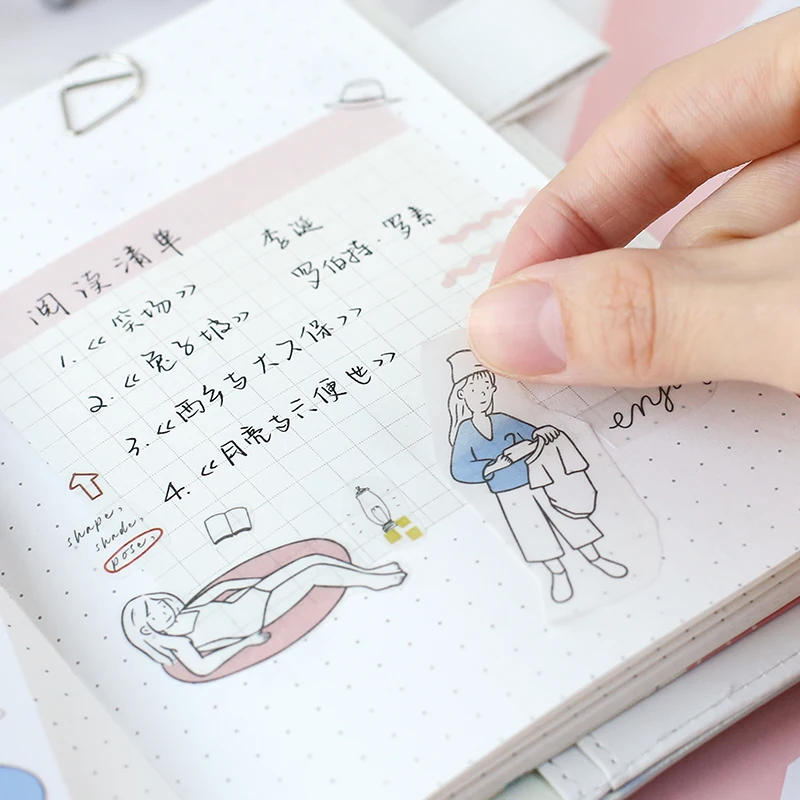 阅读清单
1.《笑场》 李诞
2.《兔子坡》 罗伯特·罗素
3.《西乡与大久保》
4.《月亮与六便士》
shape,
shade,
pose,